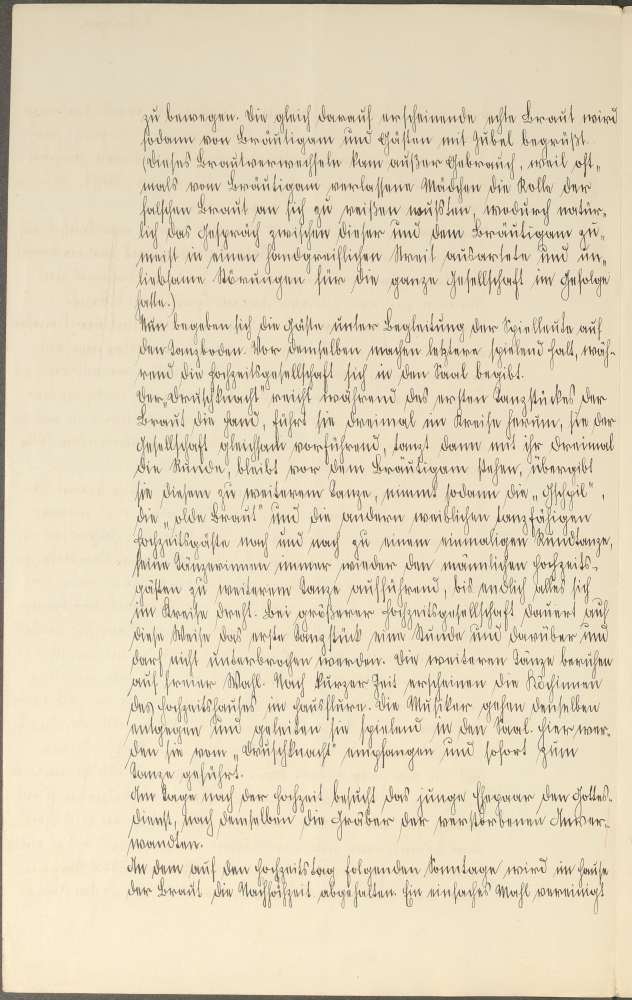 zu bewegen. Die gleich darauf erscheinende echte Braut wird
sodann von Bräutigam und Gästen mit Jubel begrüßt.
(Dieses Brautverwechseln kam außer Gebrauch, weil oft„
mals vom Bräutigam verlassene Mädchen die Rolle der
falschen Braut an sich zu reißen wußten, wodurch natür„
lich das Gespräch zwischen dieser und dem Bräutigam zu„
meist in einen handgreiflichen Streit ausartete und un„
liebsame Störungen für die ganze Gesellschaft im Gefolge
hatte.)
Nun begeben sich die Gäste unter Begleitung der Spielleute auf
den Tanzboden. Vor demselben machen letztere spielend halt, wäh-
rend die Hochzeitsgesellschaft sich in den Saal begibt.
Der „Druschknacht" reicht während des ersten Tanzstückes der
Braut die Hand, führt sie dreimal im Kreise herum, sie der
Gesellschaft gleichsam vorführend, tanzt dann mit ihr dreimal
die Runde, bleibt vor dem Bräutigam stehen, übergibt
sie diesem zu weiterem Tanze, nimmt sodann die „Gschpil",
die „olde Braut" und die andern weiblichen tanzfähigen
Hochzeitsgäste nach und nach zu einem einmaligen Rundtanze,
seine Tänzerinnen immer wieder den männlichen Hochzeits-
gästen zu weiterem Tanze aufführend, bis endlich alles sich
im Kreise dreht. Bei größerer Hochzeitsgesellschaft dauert auf
diese Weise das erste Tanzstück eine Stunde und darüber und
darf nicht unterbrochen werden. Die weiteren Tänze beruhen
auf freier Wahl. Nach kurzer Zeit erscheinen die Köchinnen
des Hochzeitshauses im Hausflure. Die Musiker gehen denselben
entgegen und geleiten sie spielend in den Saal. Hier wer-
den sie vom „Druschknacht" empfangen und sofort zum
Tanze geführt.
Am Tage nach der Hochzeit besucht das junge Ehepaar den Gottes-
dienst, nach demselben die Gräber der verstorbenen Anver-
wandten.
An dem auf den Hochzeitstag folgenden Sonntage wird im Hause
der Braut die Nachhochzeit abgehalten. Ein einfaches Mahl vereinigt